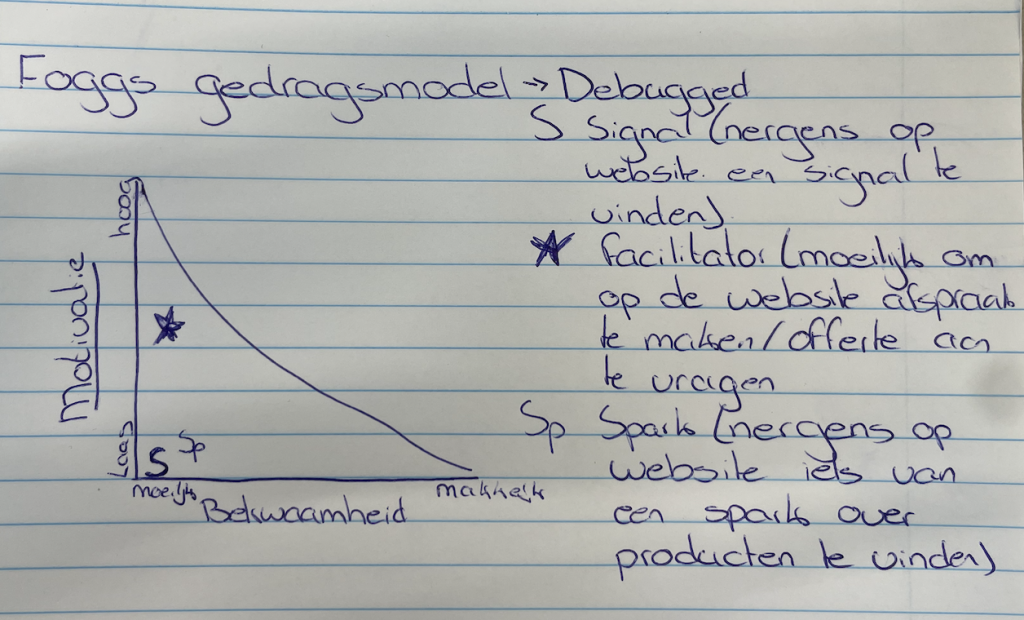 Foggs gedragsmodel → Debugged
S Signal (nergens op
website een signal te
vinden)
★ facilitator (moeilijk om
op de website afspraak
te maken/offerte aan
te vragen
Sp Spark (nergens op
website iets van
een spark over
producten te vinden)
Motivatie
hoog
Laag
★
S Sp
moeilijk
makkelijk
Bekwaamheid